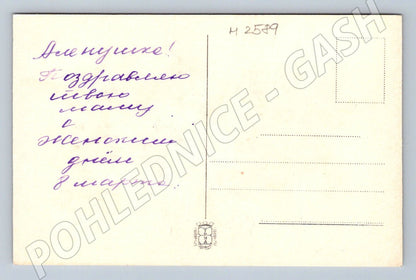 н 2589
Аленушке!
Поздравляю
твою
маму
с
женским
днём
8 марта.
POHLEDNICE - GASH